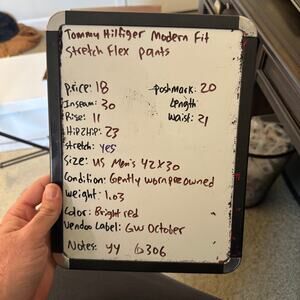 Tommy Hilfiger Modern Fit
Stretch Flex pants
Price: 18
Poshmark: 20
Inseam: 30
Length
Rise: 11
Waist: 21
Hip2Hip: 23
Stretch: Yes
Size: US Men's 42x30
Condition: Gently worn preowned
Weight: 1.03
Color: Bright red
Vendoo Label: GW October
Notes: YY 6306